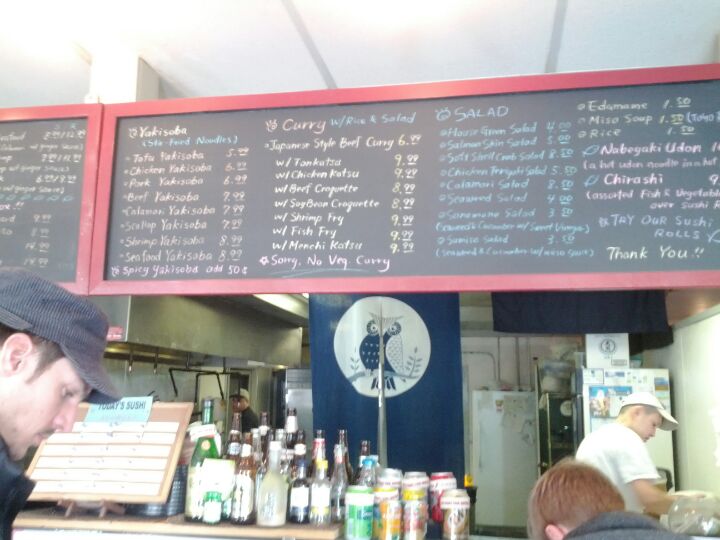 Yakisoba
(Stir-Fried Noodles)
Tofu Yakisoba 5.99
Chicken Yakisoba 6.99
Pork Yakisoba 6.99
Beef Yakisoba 7.99
Calamari Yakisoba 7.99
Scallop Yakisoba 7.99
Shrimp Yakisoba 8.99
Seafood Yakisoba 8.99
Spicy Yakisoba add 50¢
Curry w/Rice & Salad
Japanese Style Beef Curry 6.99
w/Tonkatsu 9.99
w/Chicken Katsu 9.99
w/Beef Croquette 8.99
w/SoyBean Croquette 8.99
w/Shrimp Fry 9.99
w/Fish Fry 9.99
w/Menchi Katsu 9.99
Sorry, No Veg. Curry
SALAD
House Green Salad 4.00
Salmon Skin Salad 5.00
Soft Shell Crab Salad 8.50
Chicken Teriyaki Salad 5.50
Calamari Salad 8.50
Seaweed Salad 4.00
Sunomono Salad 3.50
(Seaweed & Cucumber w/ Sweet Vinegar)
Sumiso Salad 3.50
(Seaweed & Cucumber w/miso sauce)
Edamame 1.50
Miso Soup 1.50
Rice 1.50
Nabeyaki Udon
(a hot udon noodle in a hot
Chirashi 9
(assorted Fish & Vegetable
over sushi
TRY OUR SUSHI
ROLLS
Thank You!!
TODAY'S SUSHI